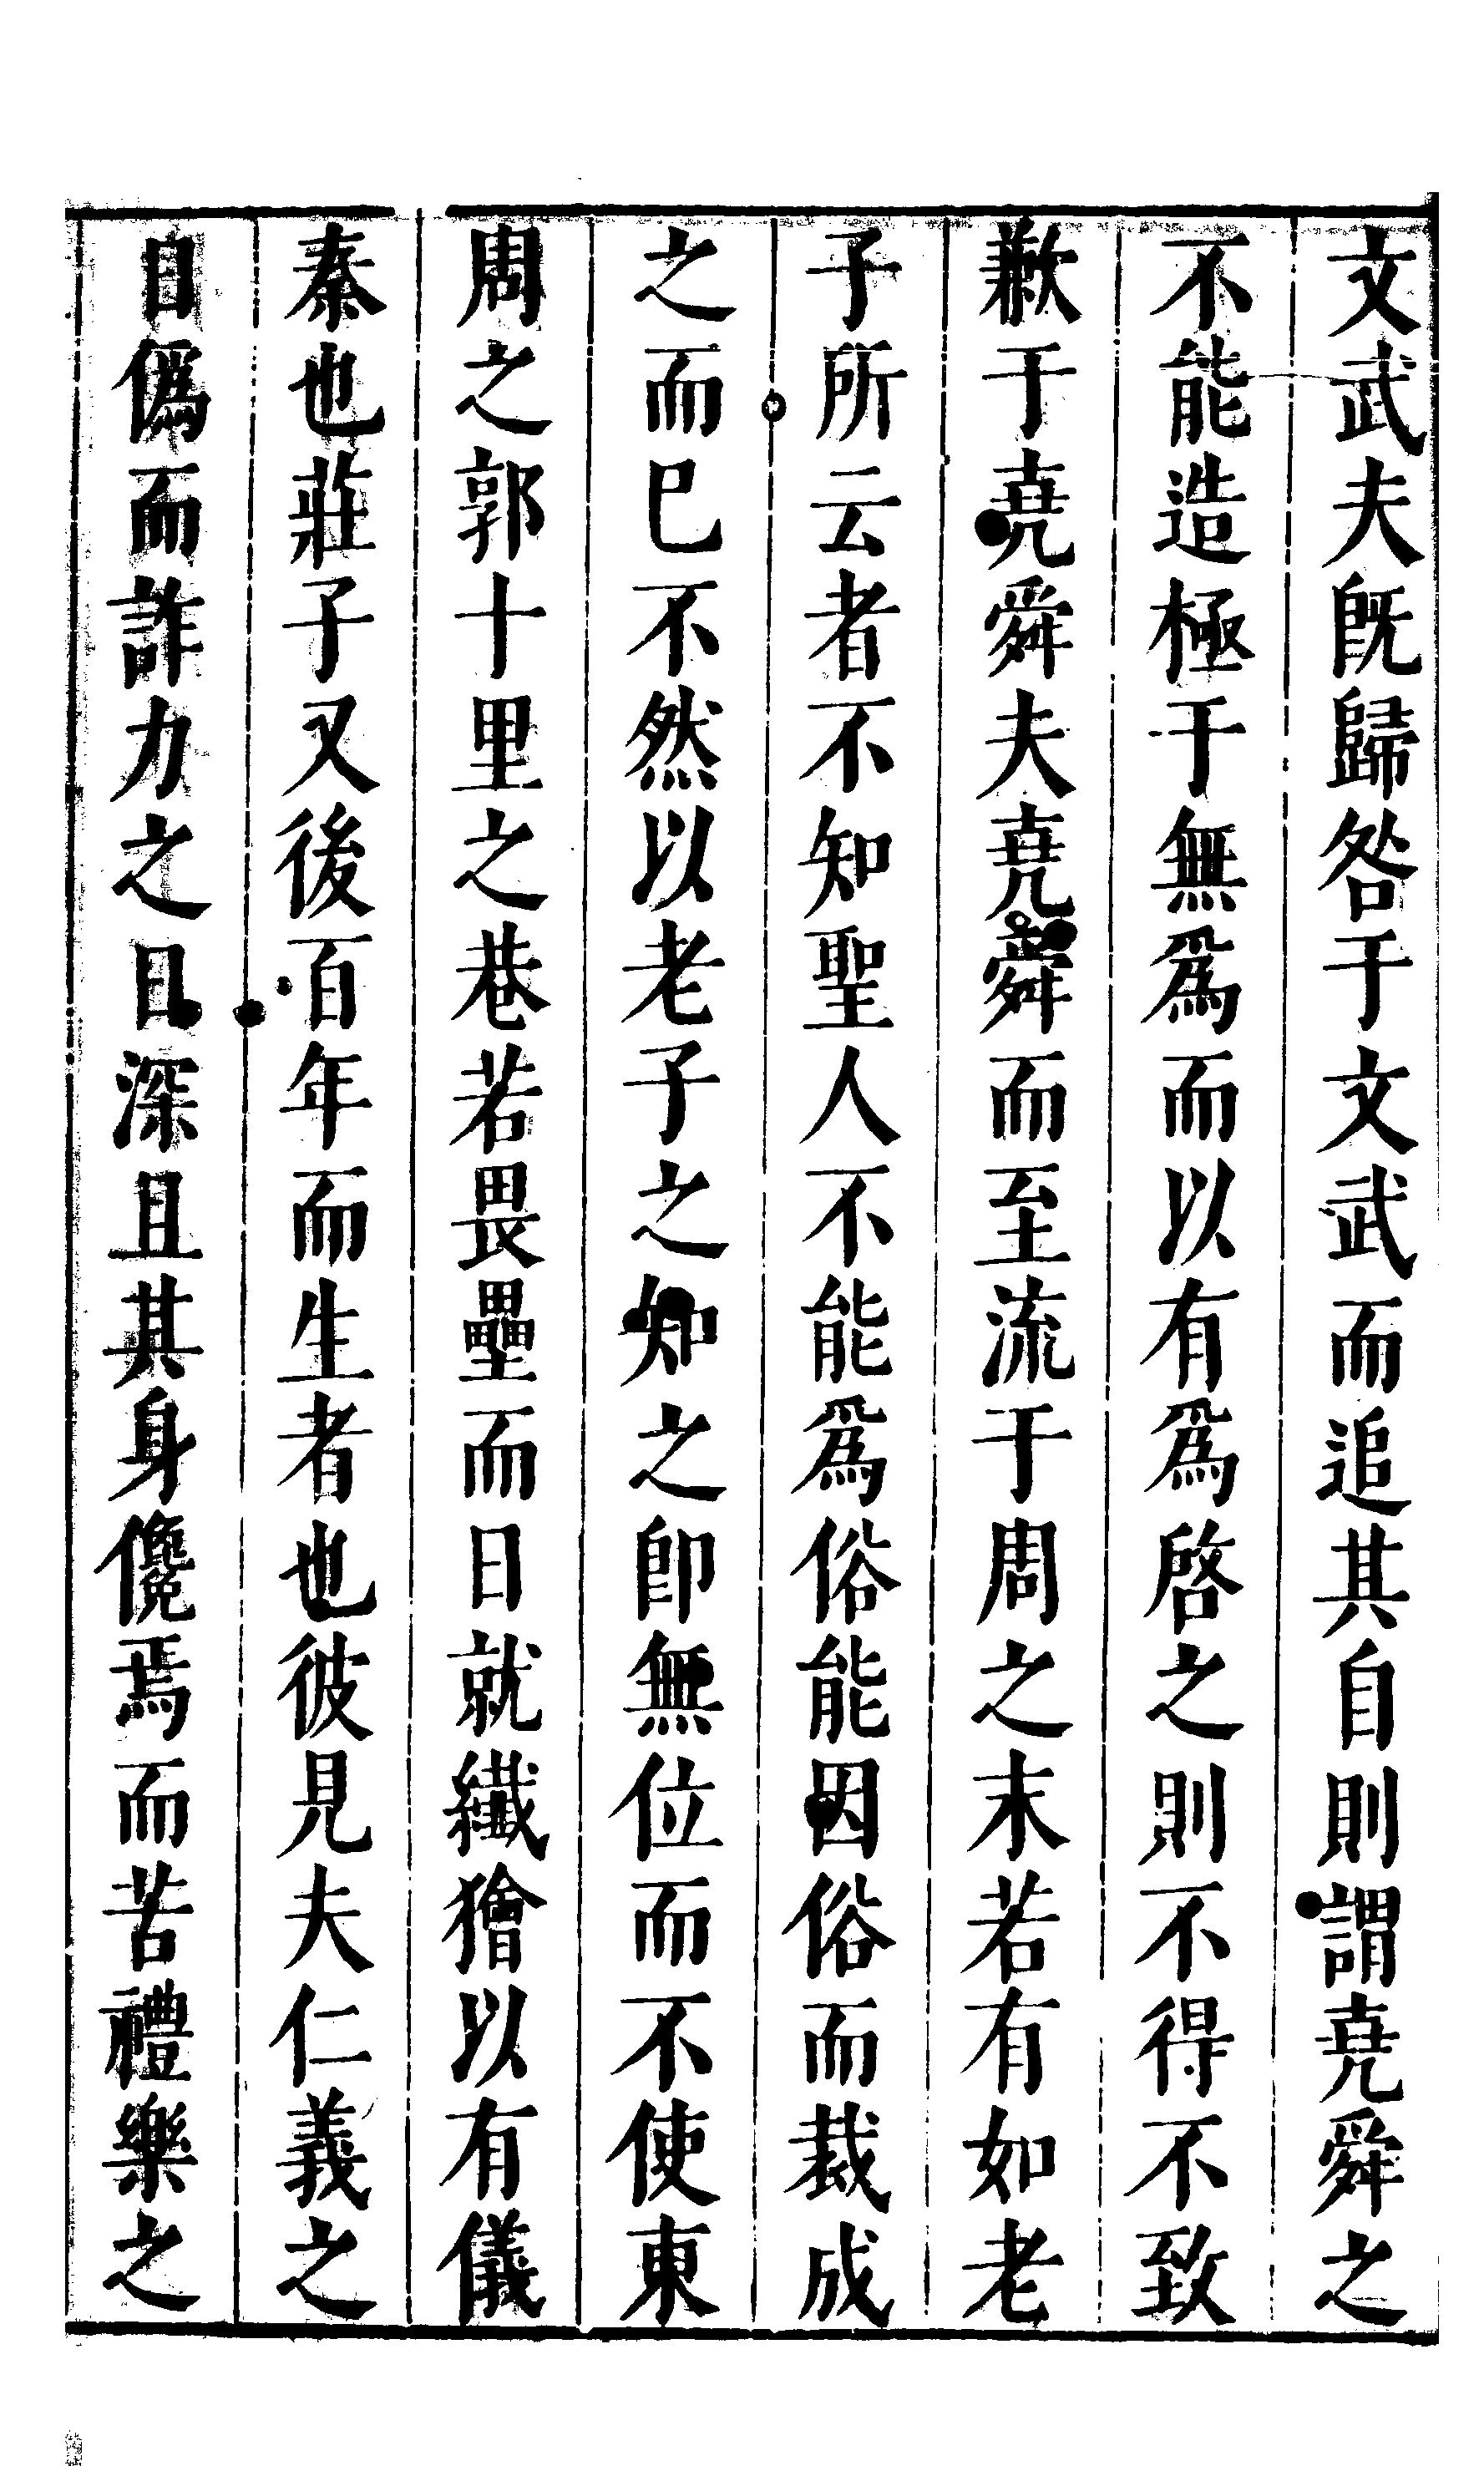 文武夫旣歸咎于文武而追其自則謂堯舜之
不能造極于無爲而以有爲啓之則不得不致
歉于堯舜夫堯舜而至流于周之末若有如老
子所云者不知聖人不能爲俗能因俗而裁成
之而巳不然以老子之知之卽無位而不使東
周之郭十里之巷若畏壘而日就纖獪以有儀
秦也莊子又後百年而生者也彼見夫仁義之
日僞而詐力之日深且其身儳焉而苦禮樂之